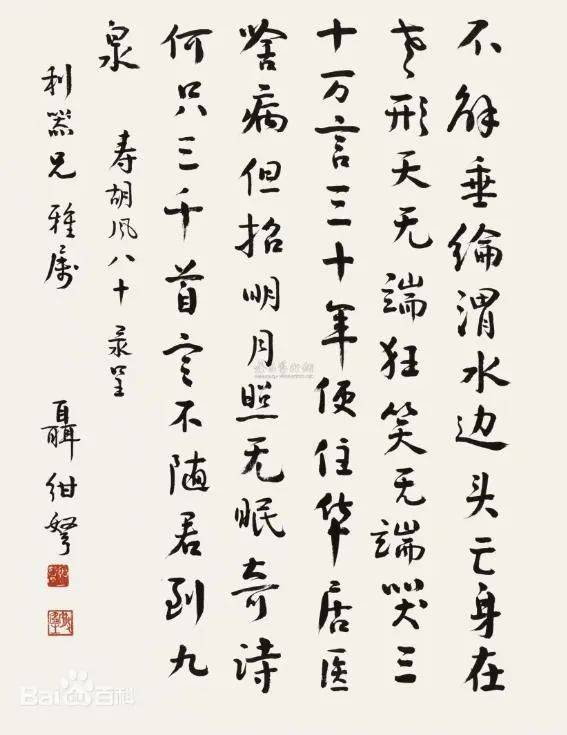 不解垂纶渭水边头亡身在
老形天无端狂笑无端哭三
十万言三十年便住华居医
啥病但招明月照无眠奇诗
何只三千首定不随君到九
泉 寿胡风八十 录呈
利器兄 雅属 聶绀弩
Bai百科